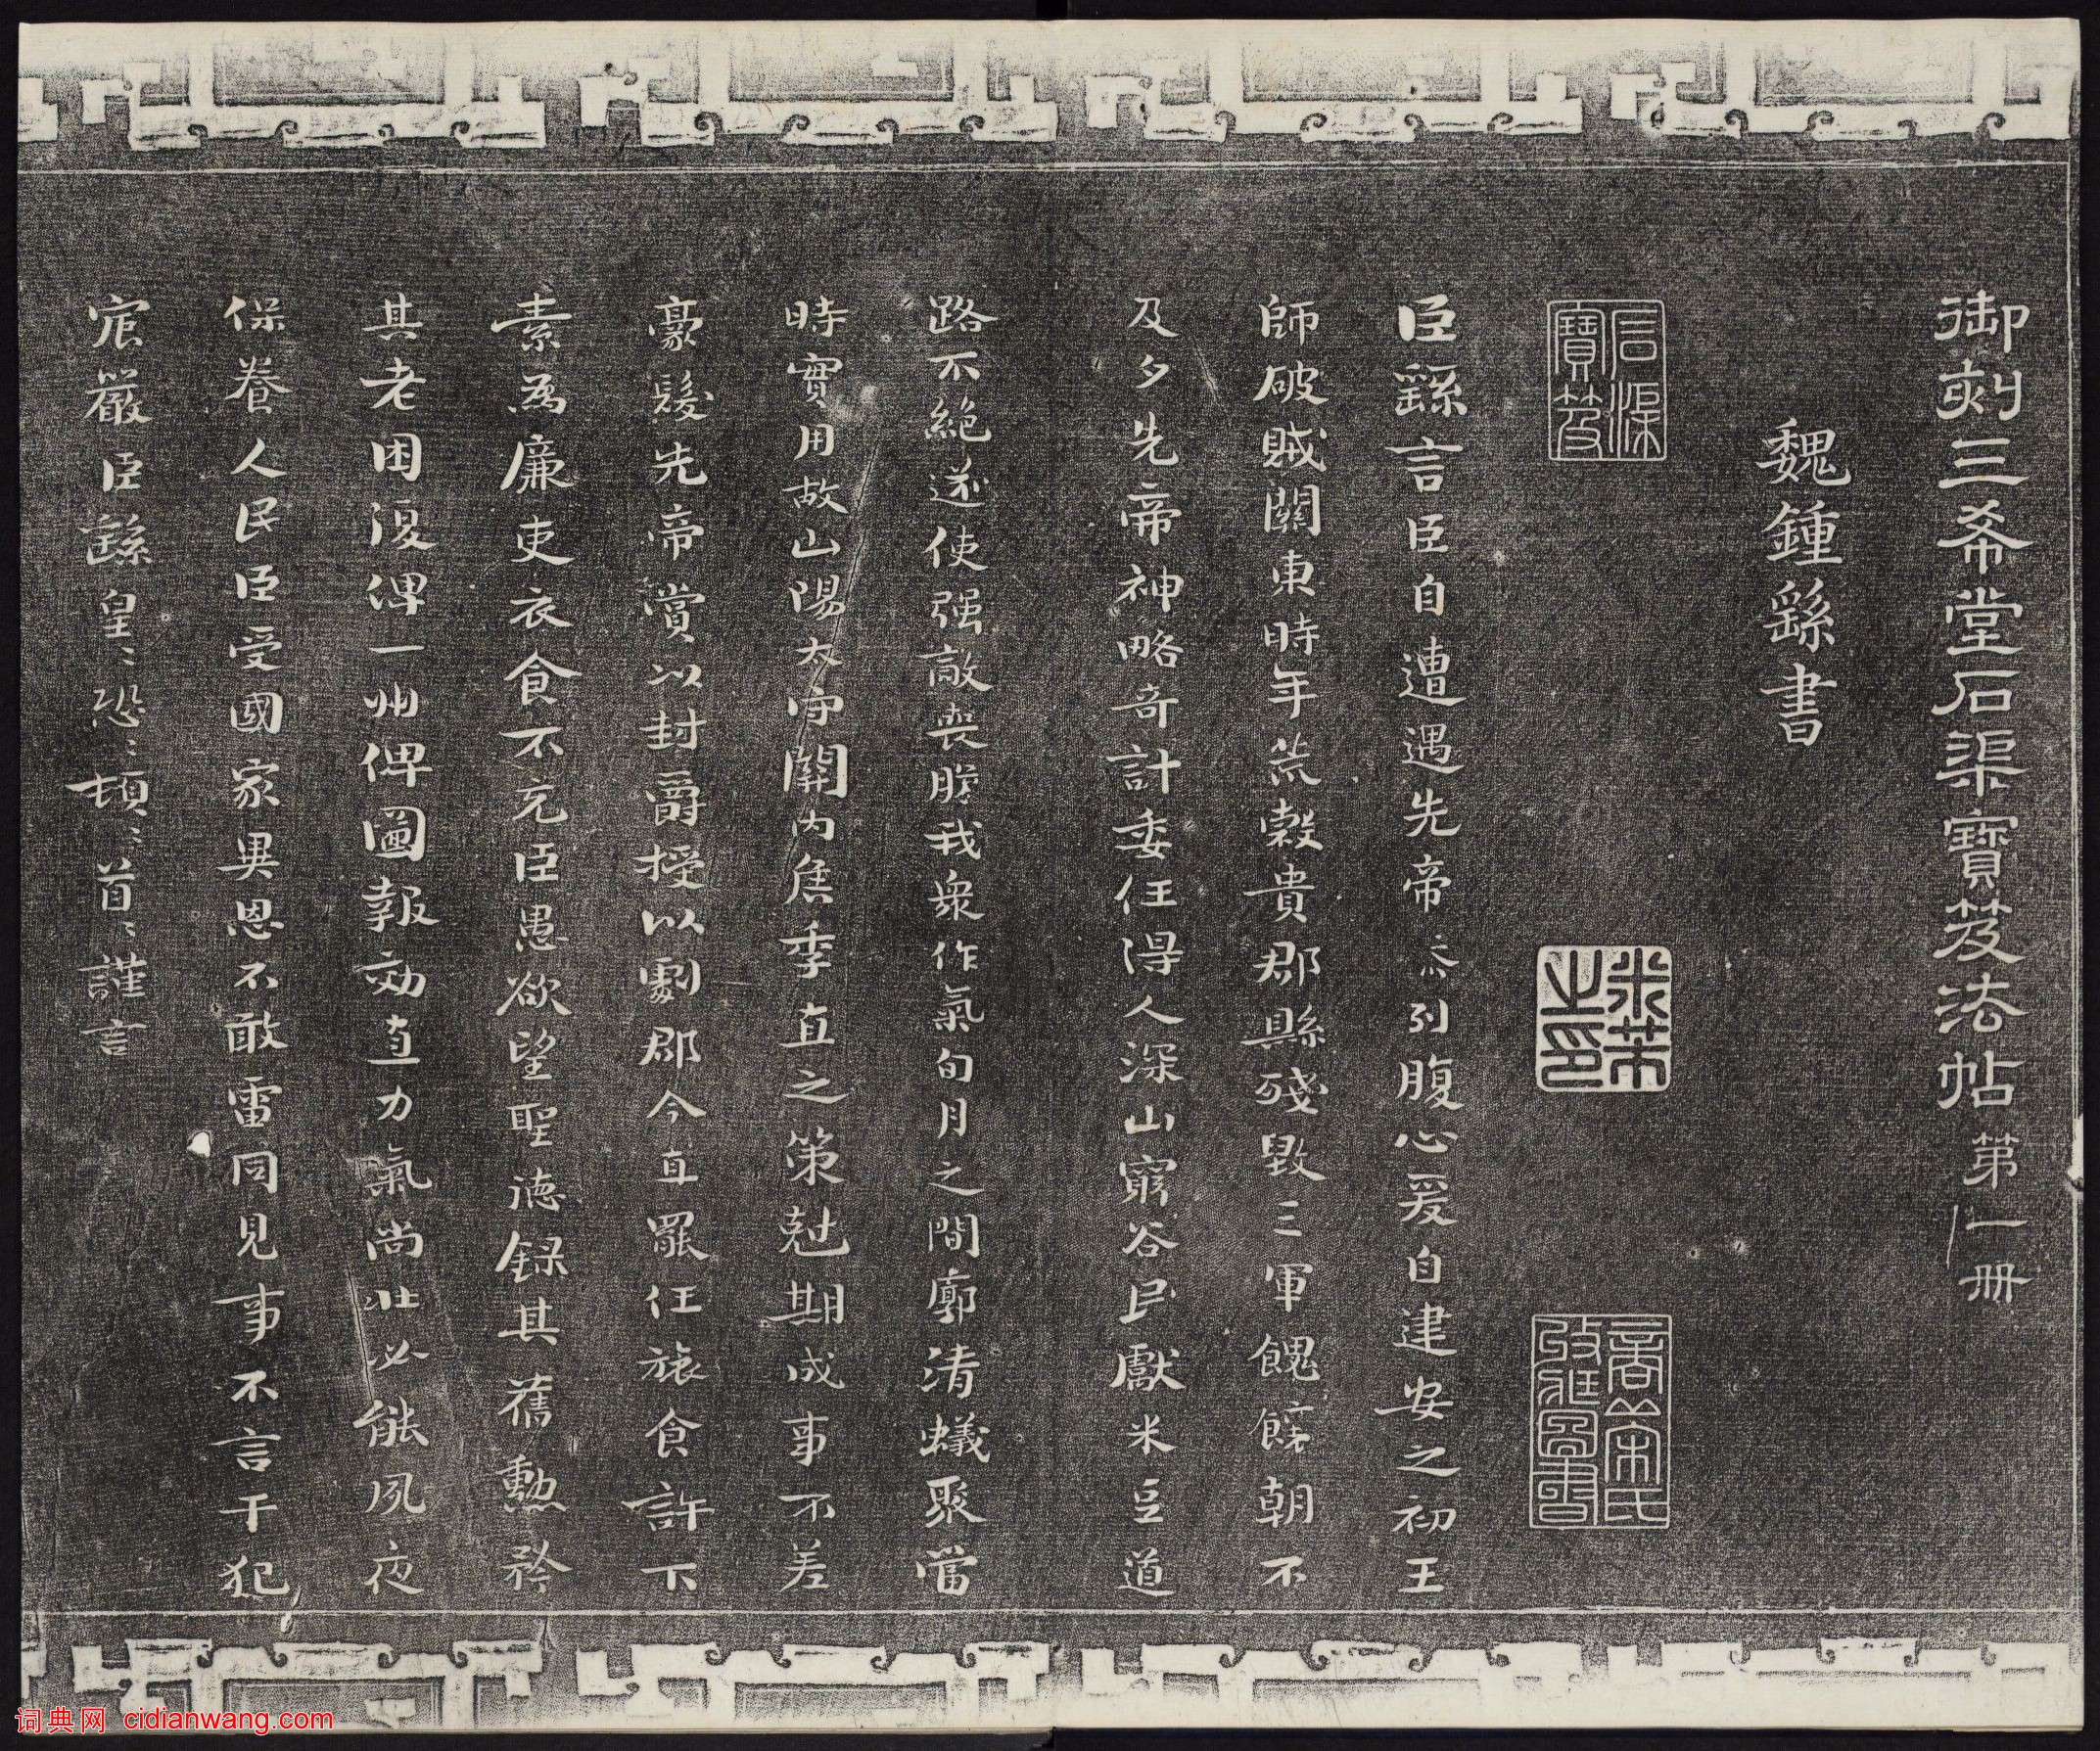 御刻三希堂石渠寶笈法帖第一冊
魏鍾繇書
石渠寶笈
米芾之印
臣繇言臣自遭遇先帝忝列腹心爰自建安之初王
師破賊關東時年荒穀貴郡縣殘毀三軍餽饟朝不
及夕先帝神略奇計委任得人深山窮谷民獻米豆道
路不絕遂使强敵喪膽我衆作氣旬月之間廓清蟻聚當
時實用故山陽太守關内侯季直之策尅期成事不差
豪髮先帝賞以封爵授以劇郡今直罷任旅食許下
素爲廉吏衣食不充臣愚欲望聖德録其舊勳矜
其老困復俾一州俾圖報効直力氣尚壯必能夙夜
保養人民臣受國家異恩不敢雷同見事不言干犯
宸嚴臣繇皇〻恐〻頓〻首〻謹言
词典网 cidianwang.com